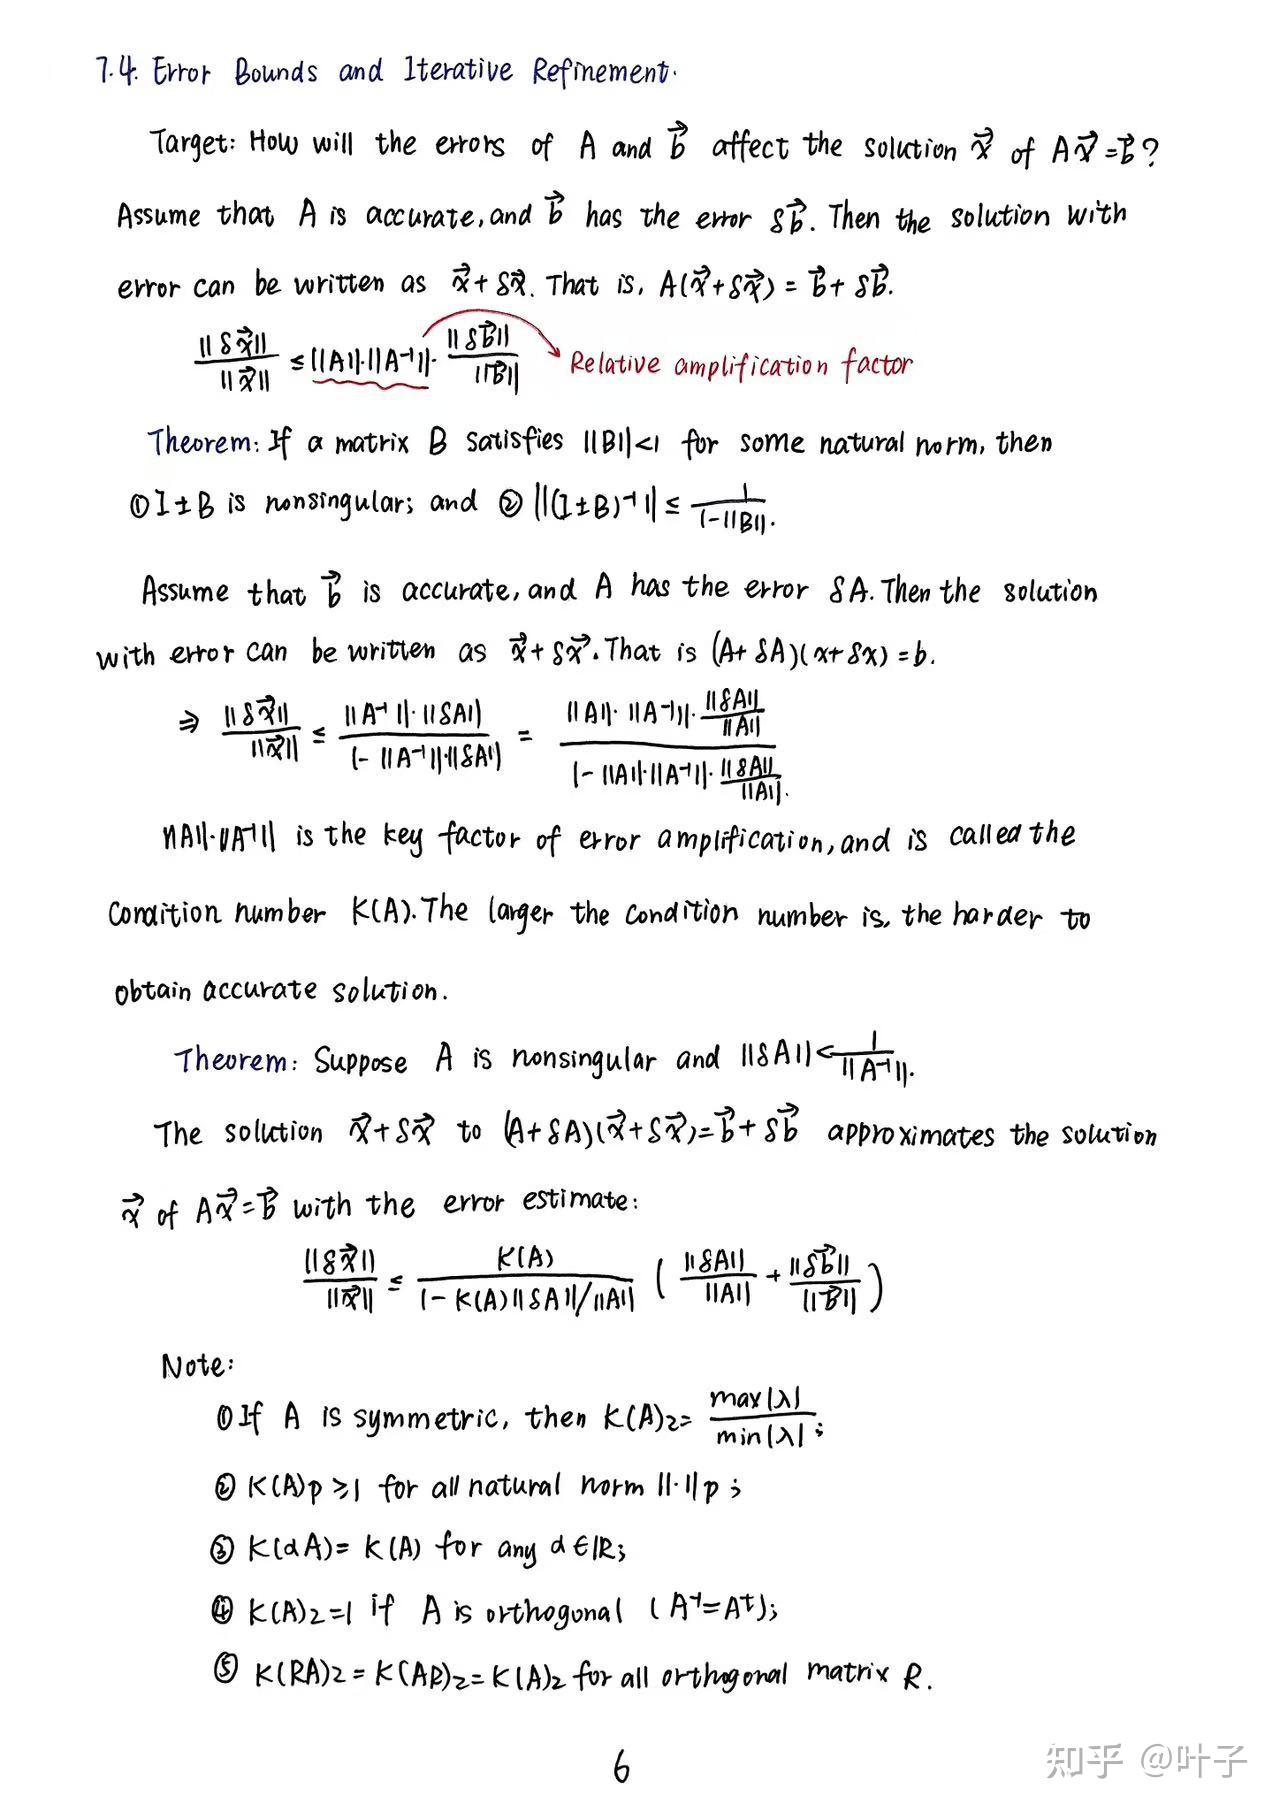 7.4. Error Bounds and Iterative Refinement.
Target: How will the errors of A and b⃗ affect the solution x⃗ of Ax⃗=b⃗?
Assume that A is accurate, and b⃗ has the error δb⃗. Then the solution with
error can be written as x⃗+δx⃗. That is, A(x⃗+δx⃗) = b⃗+δb⃗.
||δx⃗||/||x⃗|| ≤ ||A||·||A⁻¹||· ||δb⃗||/||b⃗|| Relative amplification factor
Theorem: If a matrix B satisfies ||B||<1 for some natural norm, then
① I±B is nonsingular; and ② ||(I±B)⁻¹|| ≤ 1/(1-||B||).
Assume that b⃗ is accurate, and A has the error δA. Then the solution
with error can be written as x⃗+δx⃗. That is (A+δA)(x+δx)=b.
⇒ ||δx⃗||/||x⃗|| ≤ (||A⁻¹||·||δA||)/(1-||A⁻¹||·||δA||) = (||A||·||A⁻¹||·||δA||/||A||)/(1-||A||·||A⁻¹||·||δA||/||A||).
||A||·||A⁻¹|| is the key factor of error amplification, and is called the
condition number K(A). The larger the condition number is, the harder to
obtain accurate solution.
Theorem: Suppose A is nonsingular and ||δA|| < 1/||A⁻¹||.
The solution x⃗+δx⃗ to (A+δA)(x⃗+δx⃗)=b⃗+δb⃗ approximates the solution
x⃗ of Ax⃗=b⃗ with the error estimate:
||δx⃗||/||x⃗|| ≤ K(A)/(1-K(A)||δA||/||A||) (||δA||/||A|| + ||δb⃗||/||b⃗||)
Note:
① If A is symmetric, then K(A)₂= max|λ|/min|λ|;
② K(A)p ≥1 for all natural norm ||·||p;
③ K(αA)= K(A) for any α∈ℝ;
④ K(A)₂=1 if A is orthogonal (A⁻¹=Aᵗ);
⑤ K(RA)₂ = K(AR)₂= K(A)₂ for all orthogonal matrix R.
6
知乎 @叶子